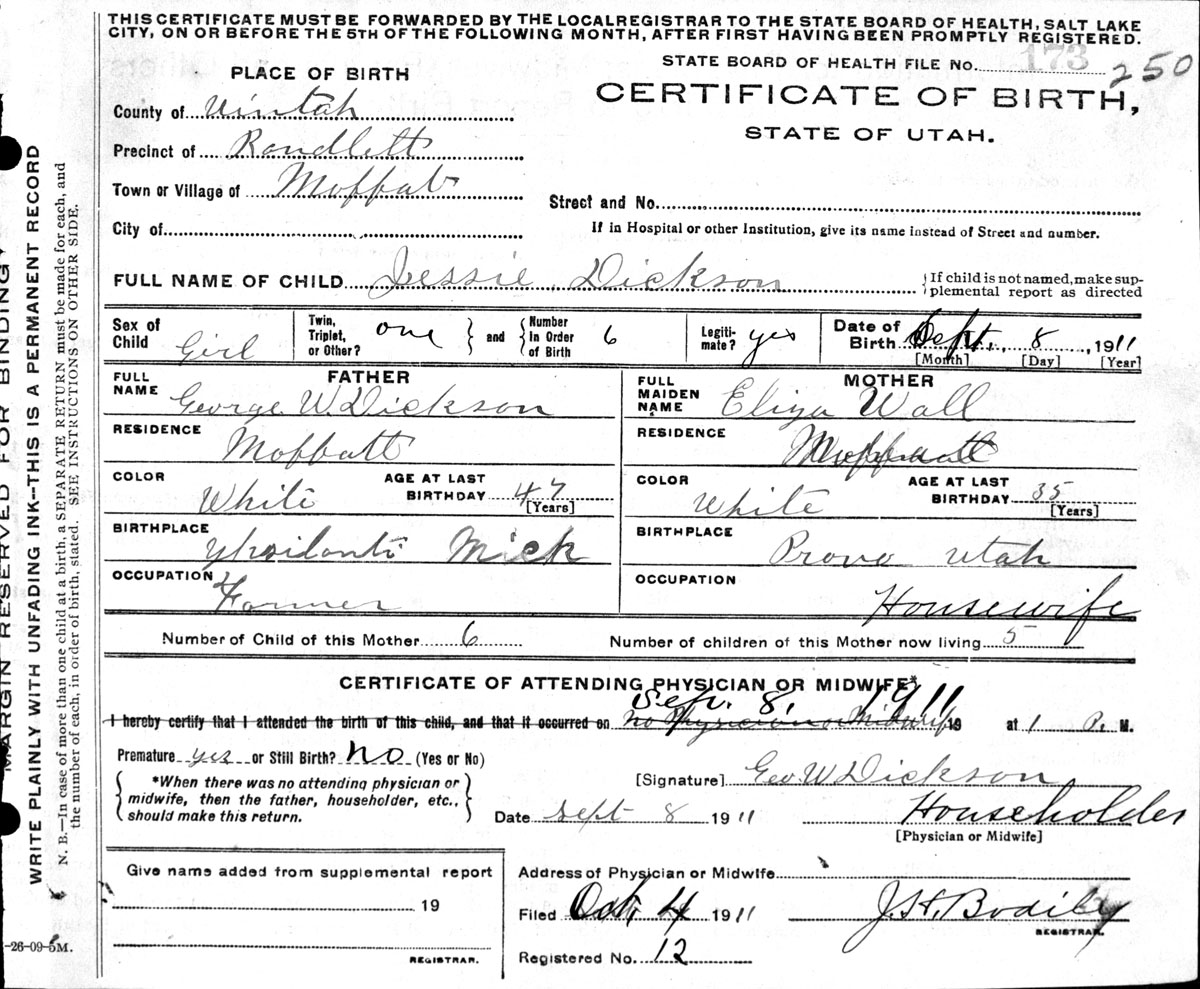 THIS CERTIFICATE MUST BE FORWARDED BY THE LOCAL REGISTRAR TO THE STATE BOARD OF HEALTH, SALT LAKE
CITY, ON OR BEFORE THE 5TH OF THE FOLLOWING MONTH, AFTER FIRST HAVING BEEN PROMPTLY REGISTERED.
STATE BOARD OF HEALTH FILE No. 173 250
PLACE OF BIRTH
CERTIFICATE OF BIRTH,
STATE OF UTAH.
County of Uintah
Precinct of Randlett
Town or Village of Moffat
Street and No.
City of
If in Hospital or other Institution, give its name instead of Street and number.
FULL NAME OF CHILD Jessie Dickson
If child is not named, make sup-
plemental report as directed
Sex of Child Girl
Twin, Triplet, or Other? one and Number in Order of Birth 6
Legiti-mate? yes
Date of Birth Sept. 8, 1911
[Month] [Day] [Year]
FATHER
FULL NAME George W. Dickson
RESIDENCE Moffatt
COLOR White AGE AT LAST BIRTHDAY 47 [Years]
BIRTHPLACE Ypsilanti Mich
OCCUPATION Farmer
MOTHER
FULL MAIDEN NAME Eliza Wall
RESIDENCE Moffatt
COLOR White AGE AT LAST BIRTHDAY 35 [Years]
BIRTHPLACE Provo Utah
OCCUPATION Housewife
Number of Child of this Mother 6 Number of children of this Mother now living 5
CERTIFICATE OF ATTENDING PHYSICIAN OR MIDWIFE*
Sep. 8, 1911
I hereby certify that I attended the birth of this child, and that it occurred on no Physician or Midwife 19 at 1 P. M.
Premature yes or Still Birth? No (Yes or No)
*When there was no attending physician or
midwife, then the father, householder, etc.,
should make this return.
[Signature] Geo W Dickson
Date Sept 8 1911 Householder
[Physician or Midwife]
Give name added from supplemental report
19
REGISTRAR.
Address of Physician or Midwife
Filed Oct, 4 1911 J. H. Bodily
REGISTRAR.
Registered No. 12
-26-09-5M.
MARGIN RESERVED FOR BINDING
WRITE PLAINLY WITH UNFADING INK--THIS IS A PERMANENT RECORD
N. B.—In case of more than one child at a birth, a SEPARATE RETURN must be made for each, and
the number of each, in order of birth, stated. SEE INSTRUCTIONS ON OTHER SIDE.